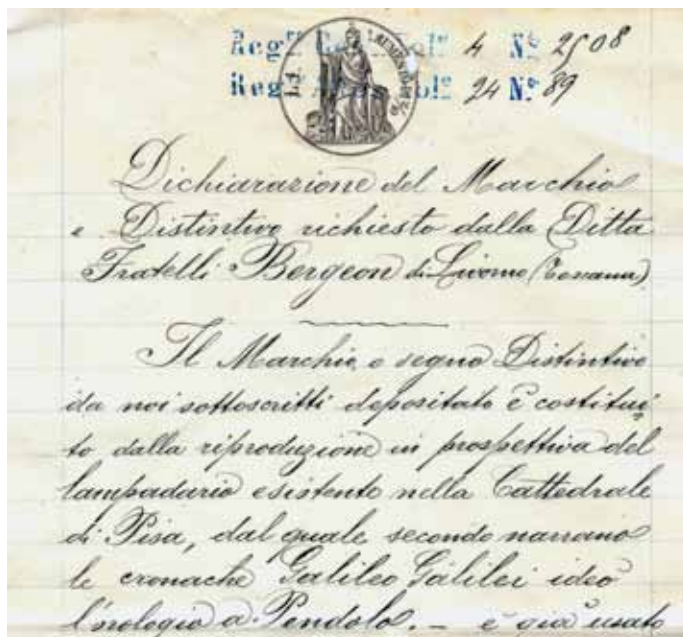 Reg.ro Gen. Vol.e 4 N.o 2508
Reg.ro Vol.e 24 N.o 89
Dichiarazione del Marchio
e Distintivo richiesto dalla Ditta
Fratelli Bergeon di Livorno (Toscana)
Il Marchio, o segno Distintivo
da noi sottoscritti depositato è costitui=
to dalla riproduzione in prospettiva del
lampadario esistente nella Cattedrale
di Pisa, dal quale secondo narrano
le cronache Galileo Galilei ideò
l'orologio a Pendolo. — è già usato